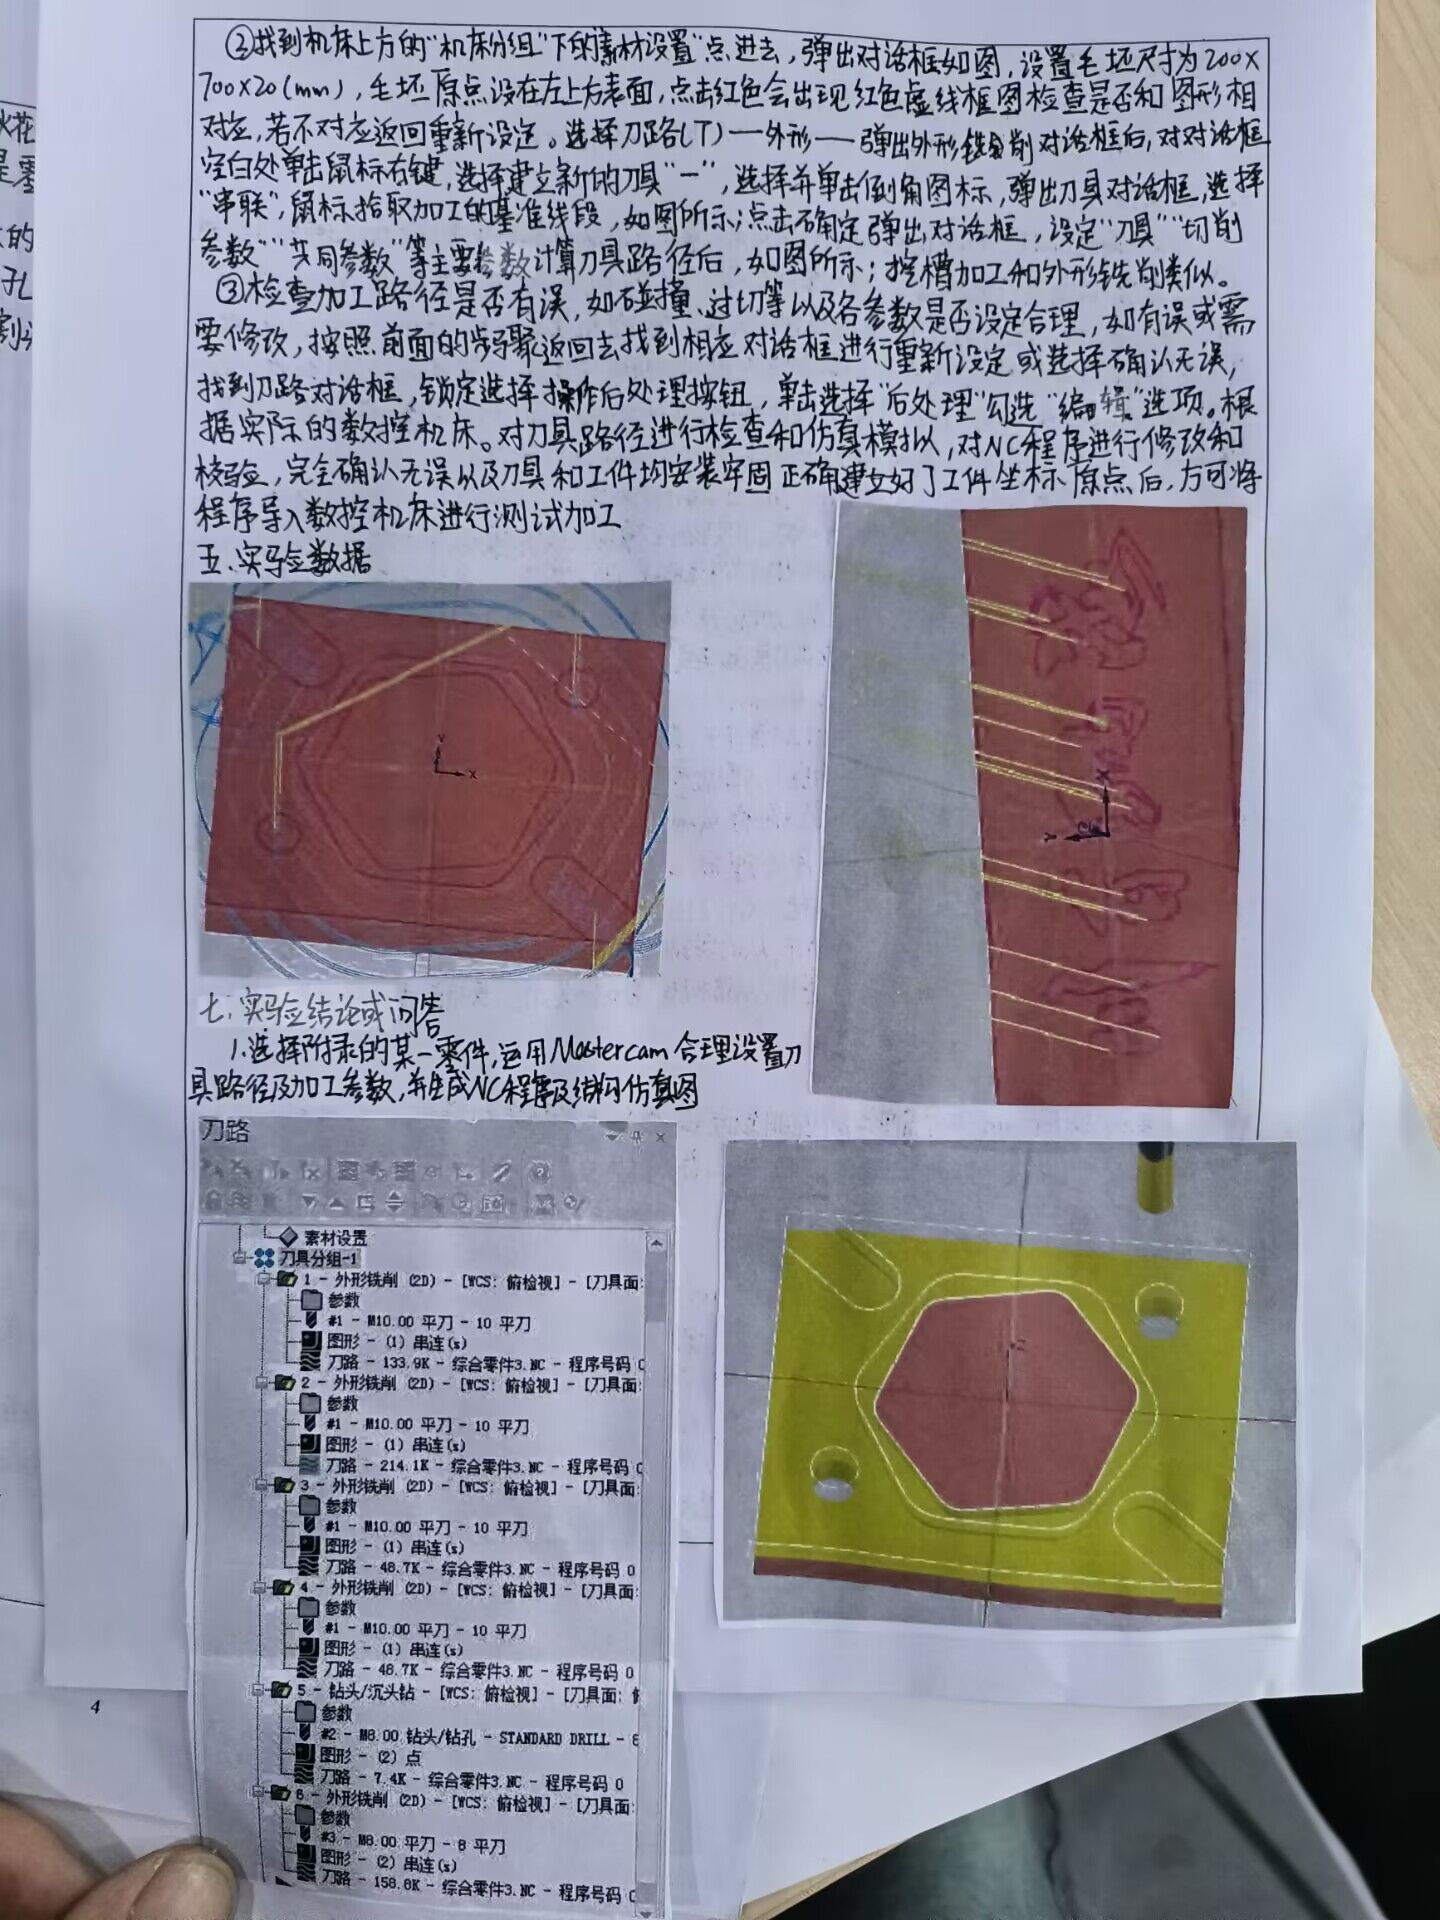 ②找到机床上方的"机床分组"下的"素材设置"点进去，弹出对话框如图，设置毛坯尺寸为200×
700×20(mm)，毛坯原点设在左上方表面，点击红色会出现红色虚线框图检查是否和图形相
对应，若不对应返回重新设定。选择刀路(T)—外形—弹出外形铣削对话框后，对对话框
空白处单击鼠标右键，选择建立新的刀具"一"，选择并单击倒角图标，弹出刀具对话框，选择
"串联"，鼠标拾取加工的基准线段，如图所示；点击确定弹出对话框，设定"刀具""切削
参数""共同参数"等主要参数计算刀具路径后，如图所示；挖槽加工和外形铣削类似。
③检查加工路径是否有误，如碰撞、过切等以及各参数是否设定合理，如有误或需
要修改，按照前面的步骤返回去找到相应对话框进行重新设定或选择确认无误，
找到刀路对话框，锁定选择操作后处理按钮，单击选择"后处理"勾选"编辑"选项。根
据实际的数控机床。对刀具路径进行检查和仿真模拟，对NC程序进行修改和
校验，完全确认无误以及刀具和工件均安装牢固正确建立好了工件坐标原点后，方可将
程序导入数控机床进行测试加工
五.实验数据
Y
X
X
Y
七.实验结论或问答
1.选择附录的某一零件，运用Mastercam合理设置刀
具路径及加工参数，并生成NC程序及结构仿真图
刀路
素材设置
刀具分组-1
1 - 外形铣削 (2D) - [WCS: 俯检视] - [刀具面:
参数
#1 - M10.00 平刀 - 10 平刀
图形 - (1) 串连(s)
刀路 - 133.9K - 综合零件3.NC - 程序号码 0
2 - 外形铣削 (2D) - [WCS: 俯检视] - [刀具面:
参数
#1 - M10.00 平刀 - 10 平刀
图形 - (1) 串连(s)
刀路 - 214.1K - 综合零件3.NC - 程序号码 0
3 - 外形铣削 (2D) - [WCS: 俯检视] - [刀具面:
参数
#1 - M10.00 平刀 - 10 平刀
图形 - (1) 串连(s)
刀路 - 48.7K - 综合零件3.NC - 程序号码 0
4 - 外形铣削 (2D) - [WCS: 俯检视] - [刀具面:
参数
#1 - M10.00 平刀 - 10 平刀
图形 - (1) 串连(s)
刀路 - 48.7K - 综合零件3.NC - 程序号码 0
5 - 钻头/沉头钻 - [WCS: 俯检视] - [刀具面: 俯
参数
#2 - M8.00 钻头/钻孔 - STANDARD DRILL - 8
图形 - (2) 点
刀路 - 7.4K - 综合零件3.NC - 程序号码 0
6 - 外形铣削 (2D) - [WCS: 俯检视] - [刀具面:
参数
#3 - M8.00 平刀 - 8 平刀
图形 - (2) 串连(s)
刀路 - 158.8K - 综合零件3.NC - 程序号码 0
4